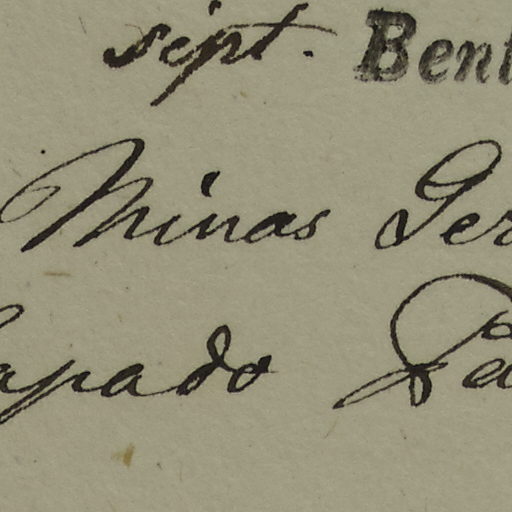 sept. Bent
Minas Ger
apado Pa